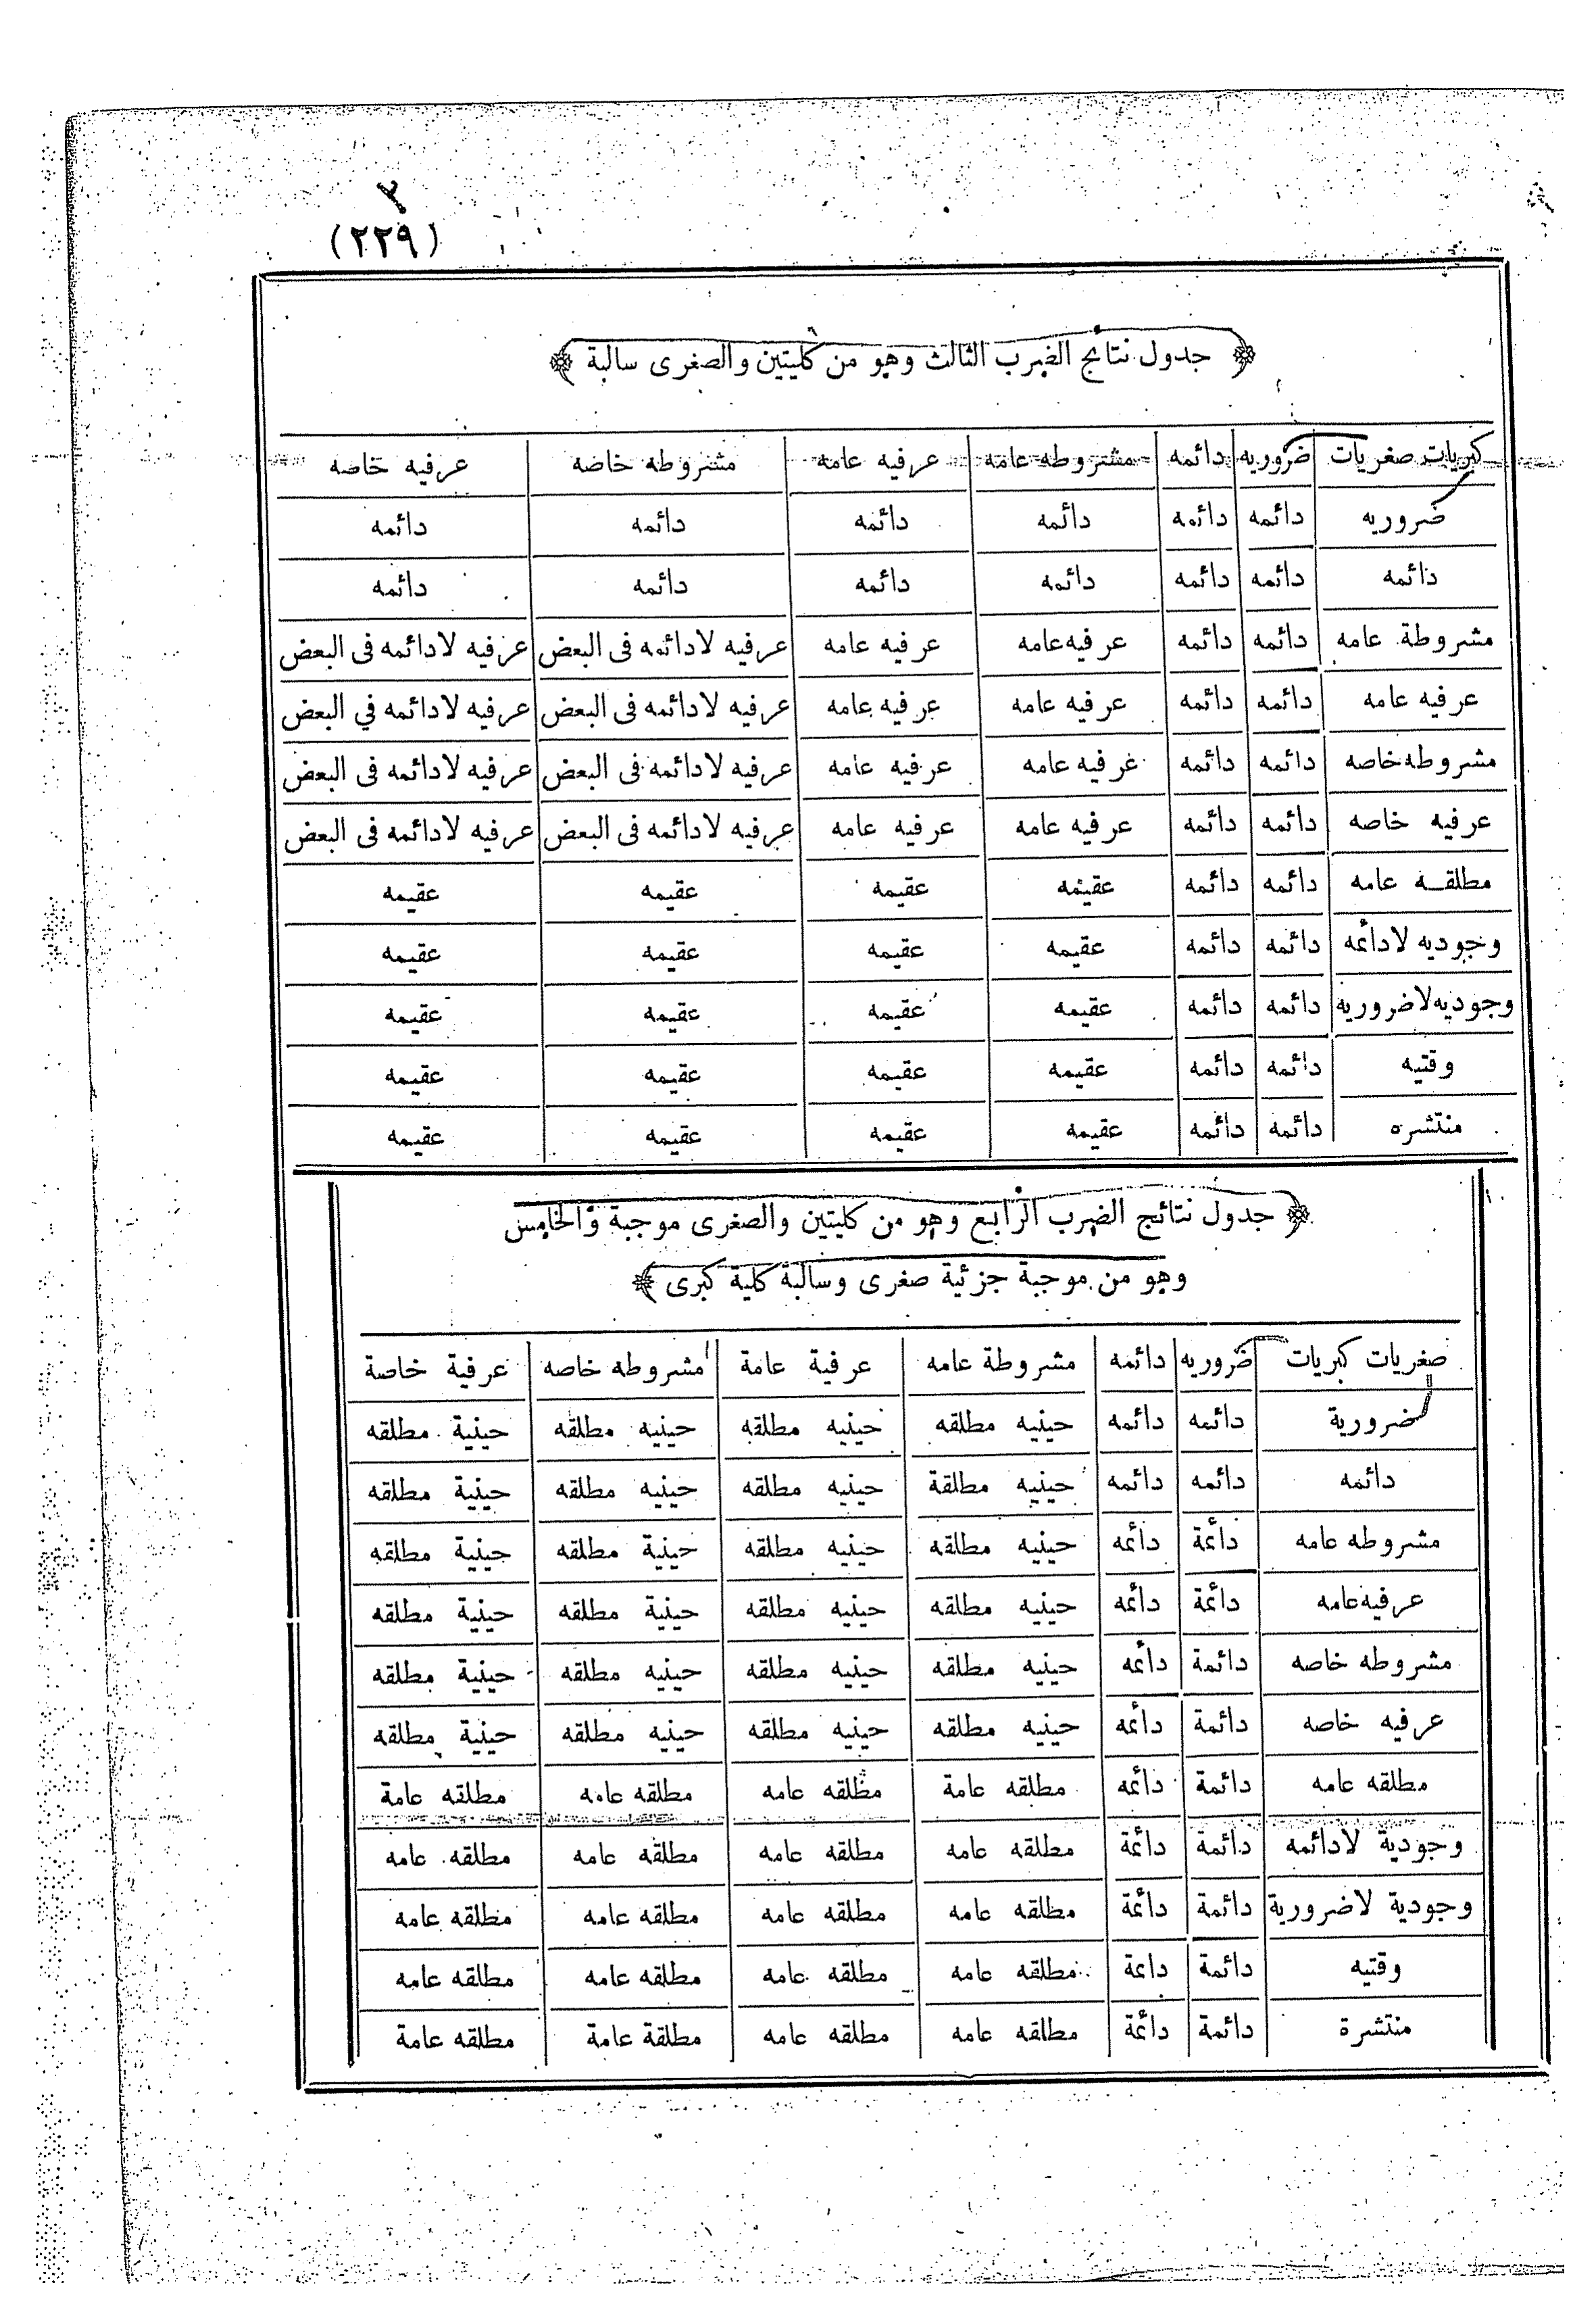 (٢٢٩)
جدول نتائج الضرب الثالث وهو من كليتين والصغرى سالبة
كبريات صغريات ضروريه دائمه مشروطه عامه عرفيه عامه مشروطه خاصه عرفيه خاصه
ضروريه دائمه دائمه دائمه دائمه دائمه دائمه
دائمه دائمه دائمه دائمه دائمه دائمه دائمه
مشروطة عامه دائمه دائمه عرفيه عامه عرفيه عامه عرفيه لادائمه فى البعض عرفيه لادائمه فى البعض
عرفيه عامه دائمه دائمه عرفيه عامه عرفيه عامه عرفيه لادائمه فى البعض عرفيه لادائمه في البعض
مشروطه خاصه دائمه دائمه عرفيه عامه عرفيه عامه عرفيه لادائمه فى البعض عرفيه لادائمه فى البعض
عرفيه خاصه دائمه دائمه عرفيه عامه عرفيه عامه عرفيه لادائمه فى البعض عرفيه لادائمه فى البعض
مطلقه عامه دائمه دائمه عقيمه عقيمه عقيمه عقيمه
وجوديه لادائمه دائمه دائمه عقيمه عقيمه عقيمه عقيمه
وجوديه لاضروريه دائمه دائمه عقيمه عقيمه عقيمه عقيمه
وقتيه دائمه دائمه عقيمه عقيمه عقيمه عقيمه
منتشره دائمه دائمه عقيمه عقيمه عقيمه عقيمه
جدول نتائج الضرب الرابع وهو من كليتين والصغرى موجبة والخامس
وهو من موجبة جزئية صغرى وسالبة كلية كبرى
صغريات كبريات ضروريه دائمه مشروطة عامه عرفية عامة مشروطه خاصه عرفية خاصة
ضرورية دائمه دائمه حينيه مطلقه حينيه مطلقه حينيه مطلقه حينية مطلقه
دائمه دائمه دائمه حينيه مطلقة حينيه مطلقه حينيه مطلقه حينية مطلقه
مشروطه عامه دائمة دائمه حينيه مطلقه حينيه مطلقه حينية مطلقه حينية مطلقه
عرفيه عامه دائمة دائمه حينيه مطلقه حينيه مطلقه حينية مطلقه حينية مطلقه
مشروطه خاصه دائمة دائمه حينيه مطلقه حينيه مطلقه حينيه مطلقه حينية مطلقه
عرفيه خاصه دائمة دائمه حينيه مطلقه حينيه مطلقه حينيه مطلقه حينية مطلقه
مطلقه عامه دائمة دائمه مطلقه عامة مطلقه عامه مطلقه عامه مطلقه عامة
وجودية لادائمه دائمة دائمة مطلقه عامه مطلقه عامه مطلقه عامه مطلقه عامه
وجودية لاضرورية دائمة دائمة مطلقه عامه مطلقه عامه مطلقه عامه مطلقه عامه
وقتيه دائمة دائمة مطلقه عامه مطلقه عامه مطلقه عامه مطلقه عامه
منتشرة دائمة دائمة مطلقه عامه مطلقه عامه مطلقة عامة مطلقه عامة